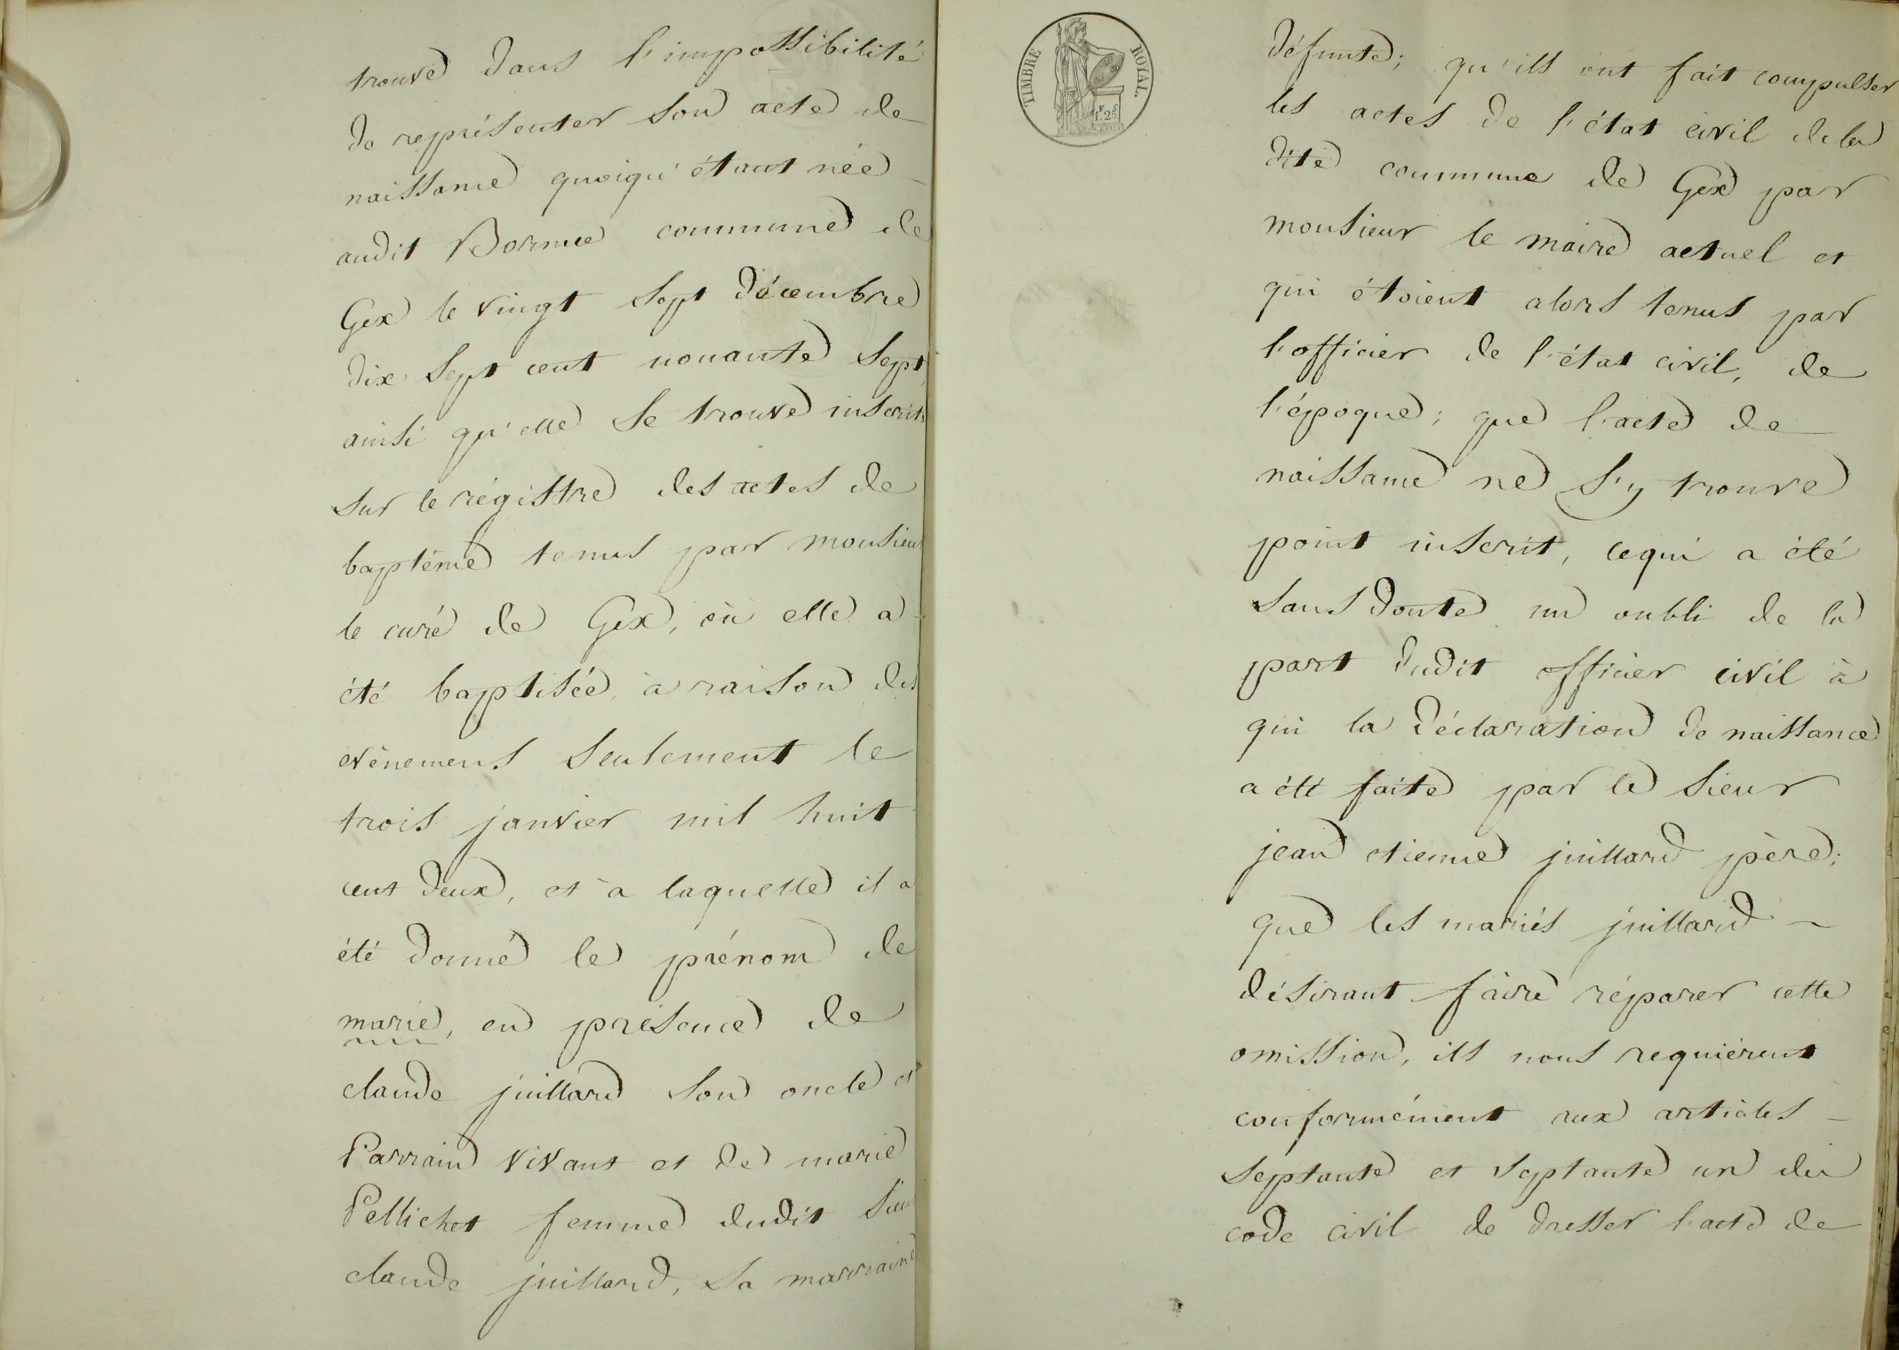 trouve dans l'impossibilité
de représenter son acte de
naissance quoiqu'étant née
audit Bornue commune de
Gex le vingt sept décembre
dix sept cent nonante sept,
ainsi qu'elle se trouve inscrite
sur le régistre des actes de
baptême tenus par monsieur
le curé de Gex, où elle a
été baptisée, à raison des
evènemens seulement le
trois janvier mil huit
cent deux, et à laquelle il a
été donné le prénom de
marie, en présence de
claude juillard son oncle et
Parrain vivant et de marie
Pellichot femme dudit Sieur
claude juillard, sa marraine
TIMBRE ROYAL.
1f. 25c
défunte; qu'ils ont fait compulser
les actes de l'état civil de la
dite commune de Gex par
monsieur le maire actuel et
qui étoient alors tenus par
l'officier de l'état civil, de
l'époque; que l'acte de
naissance ne s'y trouve
point inscrit, ce qui a été
sans doute un oubli de la
part dudit officier civil à
qui la déclaration de naissance
a été faite par le sieur
jean etienne juillard père;
que les mariés juillard ~
désirant faire réparer cette
omission, ils nous requièrent
conformément aux articles
septante et septante un du
code civil de dresser l'acte de